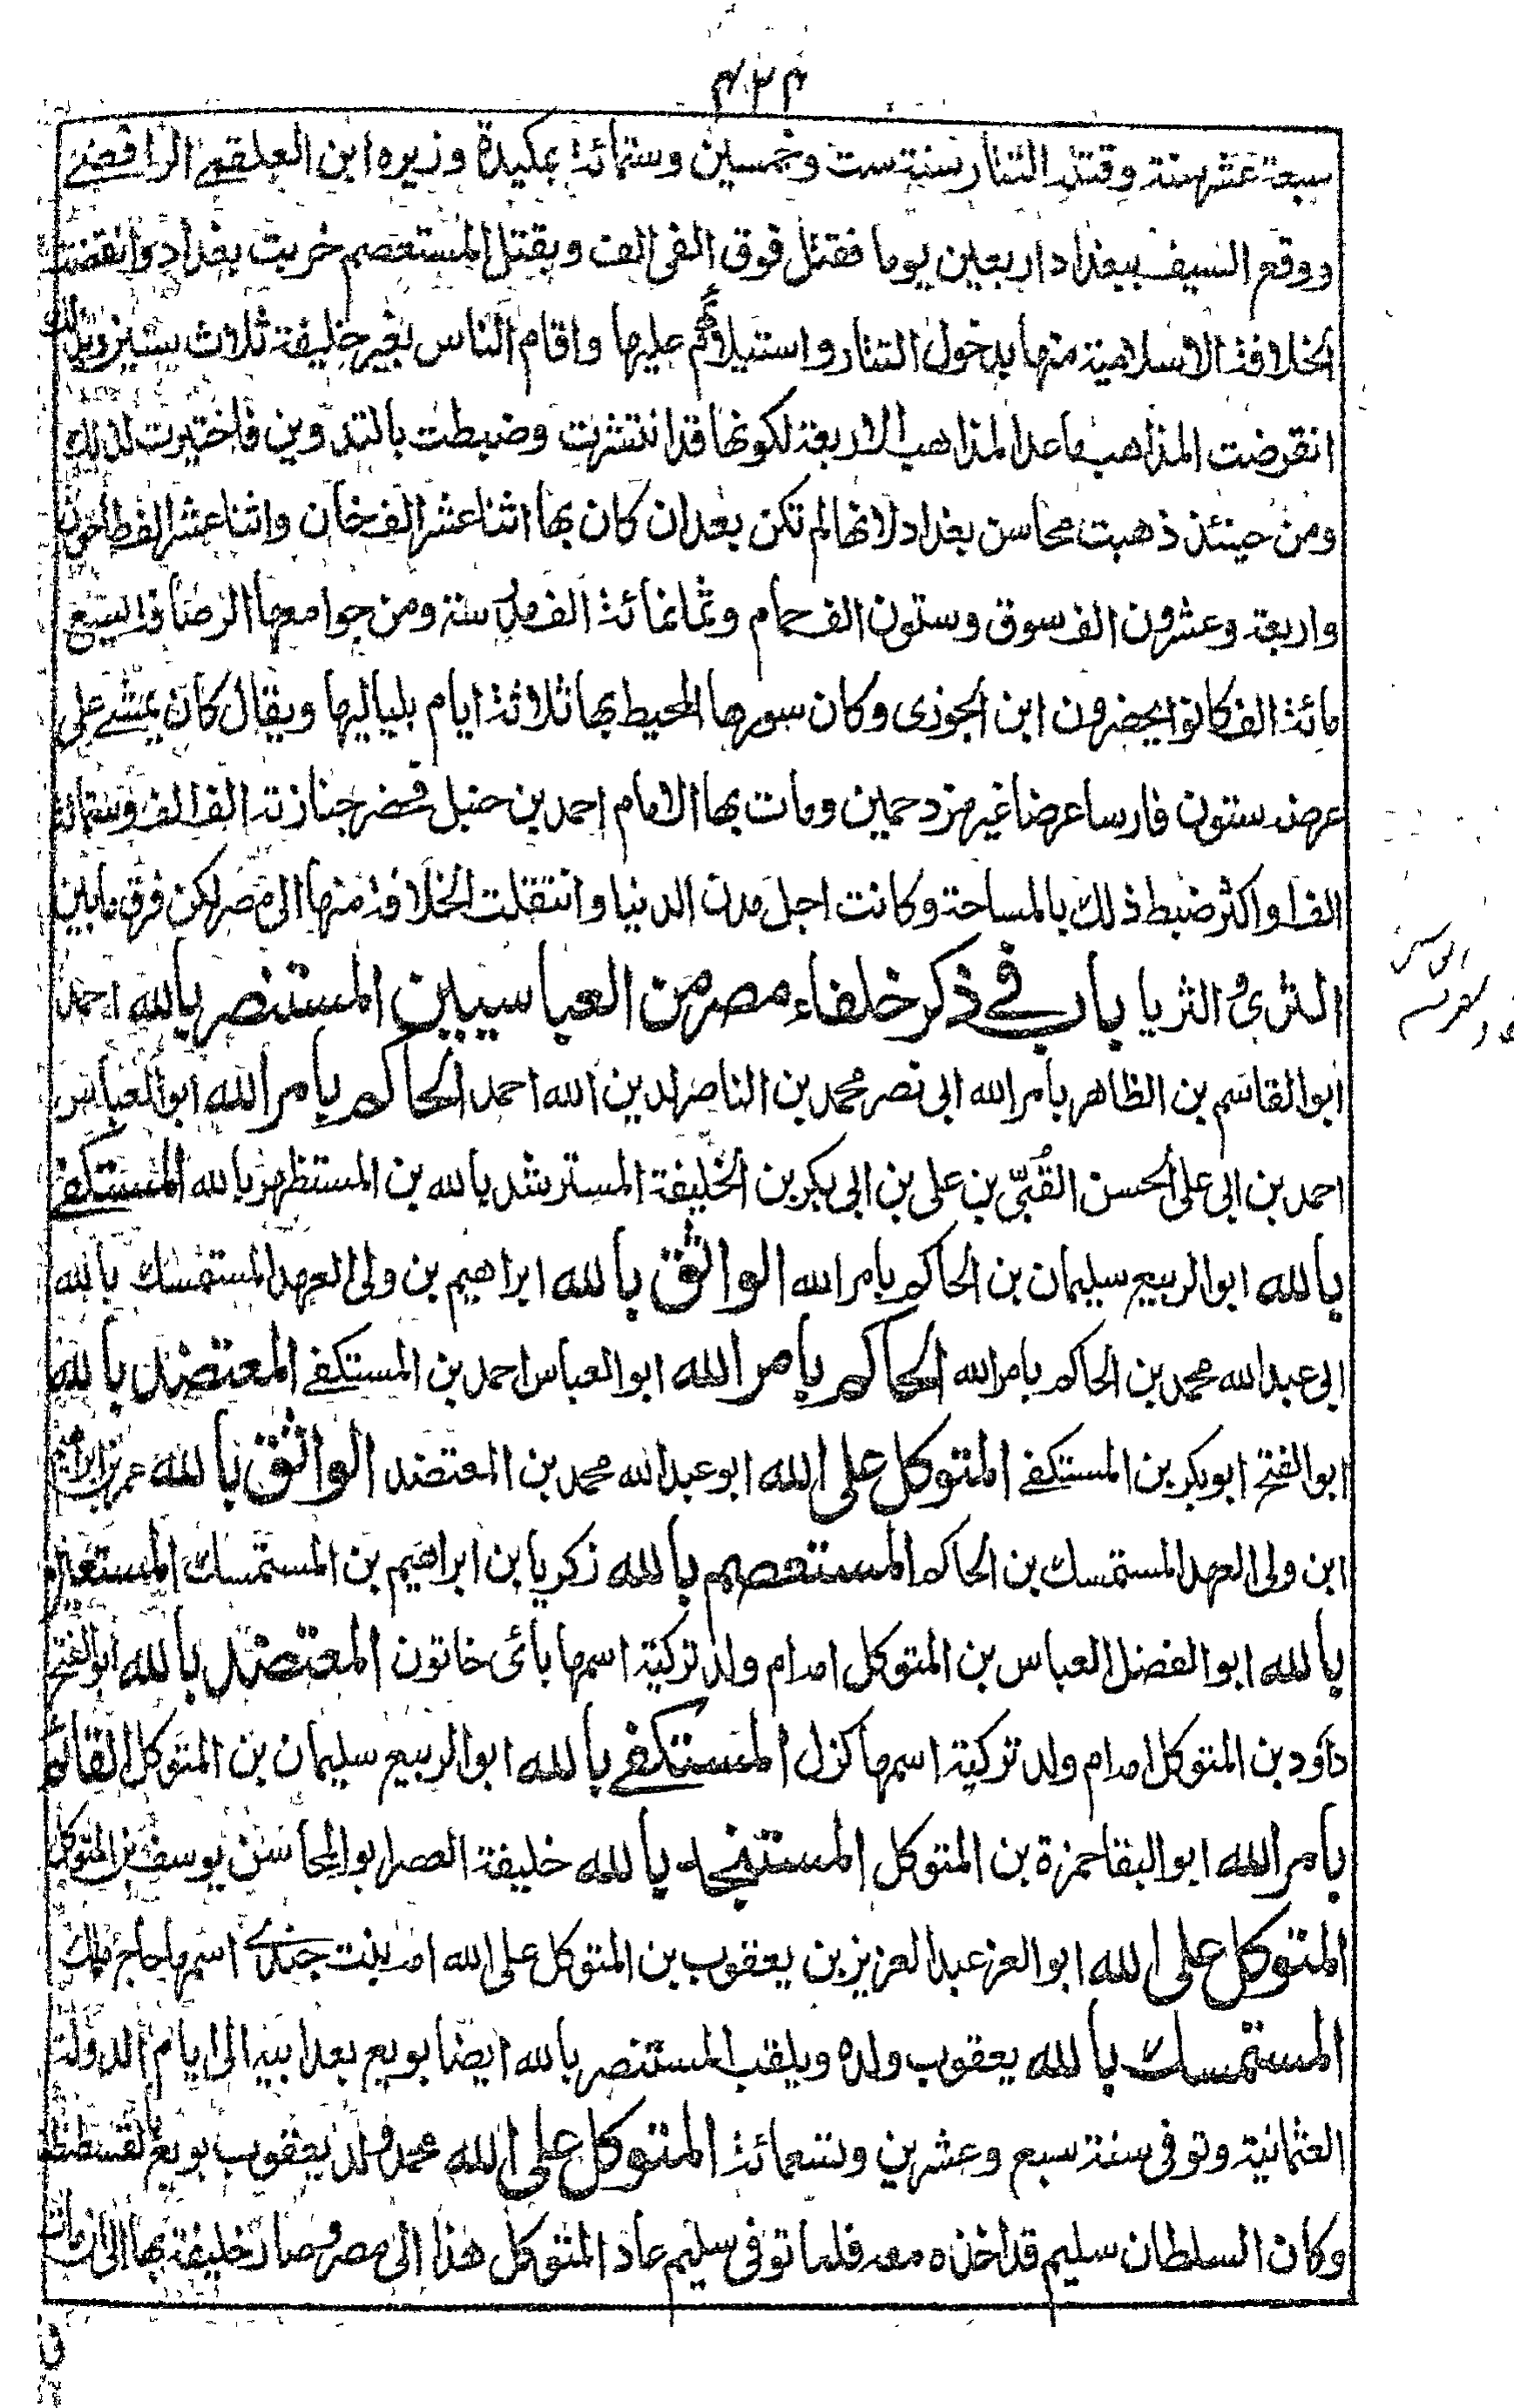 سبعة عشر سنة وقتله التتار سنة ست وخمسين وستمائة بمكيدة وزيره ابن العلقمي الرافضي
ووقع السيف ببغداد اربعين يوما فقتل فوق الفي الف وبقتل المستعصم خربت بغداد وانقضت
الخلافة الاسلامية منها بدخول التتار واستيلائهم عليها واقام الناس بغير خليفة ثلاث سنين
انقرضت المذاهب ماعدا المذاهب الاربعة لكونها قد انتشرت وضبطت بالتدوين فاختيرت لذلك
ومن حينئذ ذهبت محاسن بغداد لانها لم تكن بعد ان كان بها اثنا عشر الف خان واثنا عشر الف طاحون
واربعة وعشرون الف سوق وستون الف حمام وثمانمائة الف مدرسة ومن جوامعها الرصافة
مائة الف كانوا يحضرون ابن الجوزى وكان سورها المحيط بها ثلاثة ايام بلياليها ويقال كان يمشي على
عرضه ستون فارسا عرضا غير مزدحمين ومات بها الامام احمد بن حنبل فحضر جنازته الف الف وستمائة
الف او اكثر ضبط ذلك بالمساحة وكانت اجل مدن الدنيا وانتقلت الخلافة منها الى مصر لكن فرق مابين
الثرى والثريا باب في ذكر خلفاء مصر من العباسيين المستنصر بالله احمد
ابو القاسم بن الظاهر بأمر الله ابى نصر محمد بن الناصر لدين الله احمد الحاكم بامر الله ابو العباس
احمد بن ابى على الحسن القُبّى بن على بن ابى بكر بن الخليفة المسترشد بالله بن المستظهر بالله المستكفي
بالله ابو الربيع سليمان بن الحاكم بامر الله الواثق بالله ابراهيم بن ولى العهد المستمسك بالله
ابى عبد الله محمد بن الحاكم بامر الله الحاكم بامر الله ابو العباس احمد بن المستكفي المعتضد بالله
ابو الفتح ابو بكر بن المستكفي المتوكل على الله ابو عبد الله محمد بن المعتضد الواثق بالله عمر بن ابراهيم
ابن ولى العهد المستمسك بن الحاكم المستعصم بالله زكريا بن ابراهيم بن المستمسك المستعين
بالله ابو الفضل العباس بن المتوكل امه ام ولد تركية اسمها بائى خاتون المعتضد بالله ابو الفتح
داود بن المتوكل امه ام ولد تركية اسمها كزل المستكفي بالله ابو الربيع سليمان بن المتوكل القائم
بامر الله ابو البقا حمزة بن المتوكل المستنجد بالله خليفة العصر ابو المحاسن يوسف بن المتوكل
المتوكل على الله ابو العز عبد العزيز بن يعقوب بن المتوكل على الله امه بنت جندي اسمها حاج ملك
المستمسك بالله يعقوب ولده ويلقب المستنصر بالله ايضا بويع بعد ابيه الى ايام الدولة
العثمانية وتوفى سنة سبع وعشرين وتسعمائة المتوكل على الله محمد ولد يعقوب بويع
وكان السلطان سليم قد اخذه معه فلما توفى سليم عاد المتوكل هذا الى مصر وصار خليفة بها الى ان مات